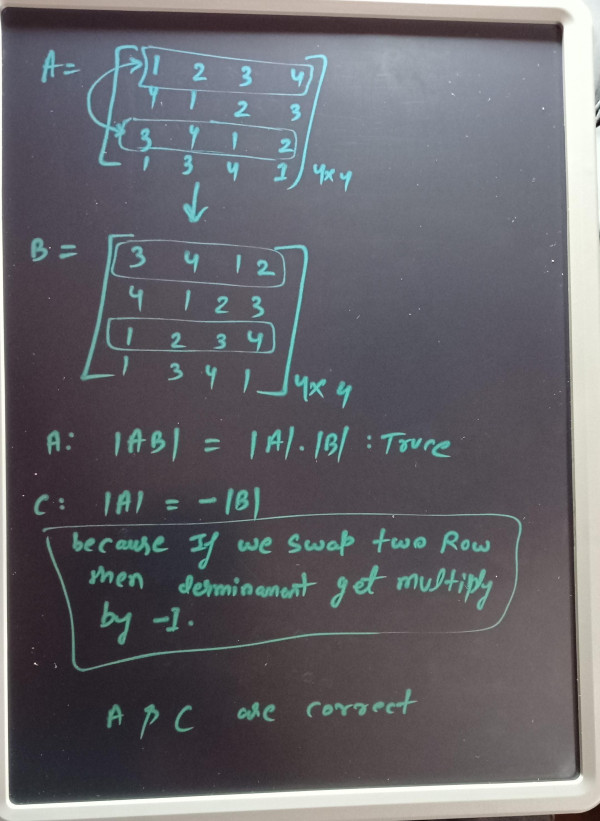 A = [ 1 2 3 4
4 1 2 3
3 4 1 2
1 3 4 1 ] 4x4
B = [ 3 4 1 2
4 1 2 3
1 2 3 4
1 3 4 1 ] 4x4
A: |AB| = |A|.|B| : True
C: |A| = -|B|
because If we swap two Row
then derminamant get multiply
by -1.
A & C are correct